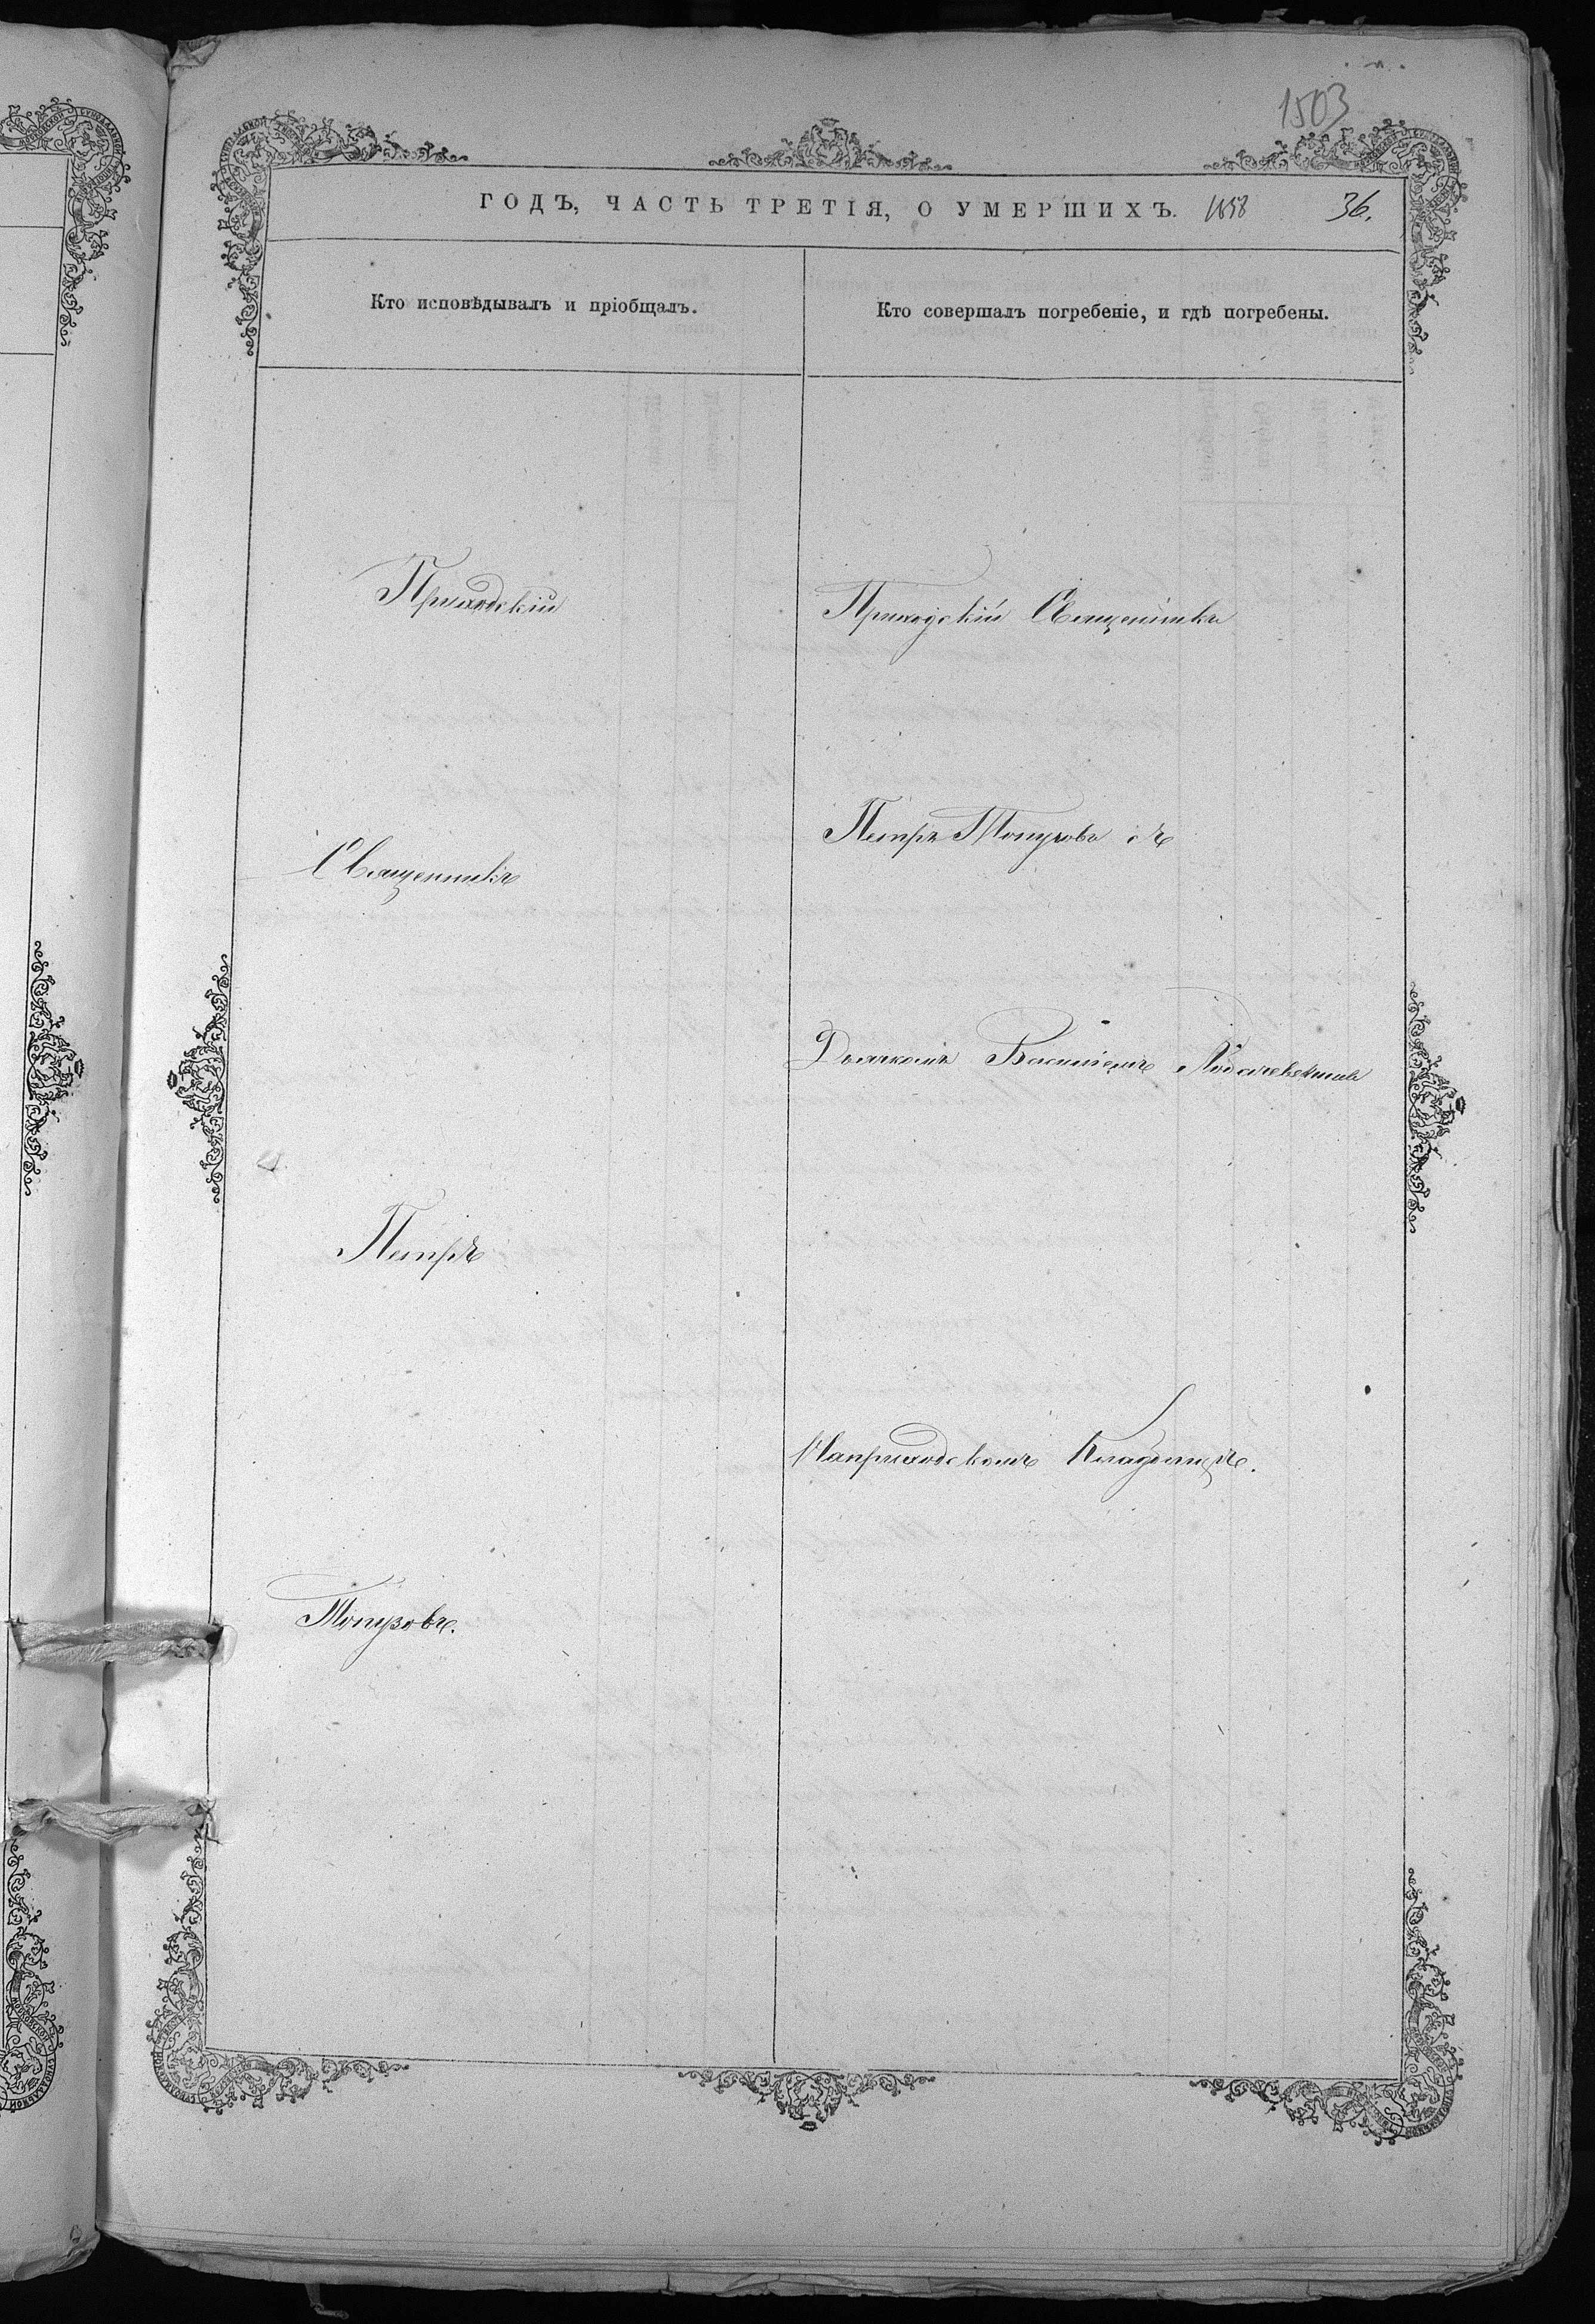 1503
ГОДЪ, ЧАСТЬ ТРЕТІЯ, О УМЕРШИХЪ. 1858 36.
Кто исповѣдывалъ и пріобщалъ.
Приходскій
Священникъ
Петръ
Топузовъ.
Кто совершалъ погребеніе, и гдѣ погребены.
Приходскій Священникъ
Петръ Топузовъ съ
Дьячкомъ Василіемъ
Наприходскомъ Кладбищѣ.